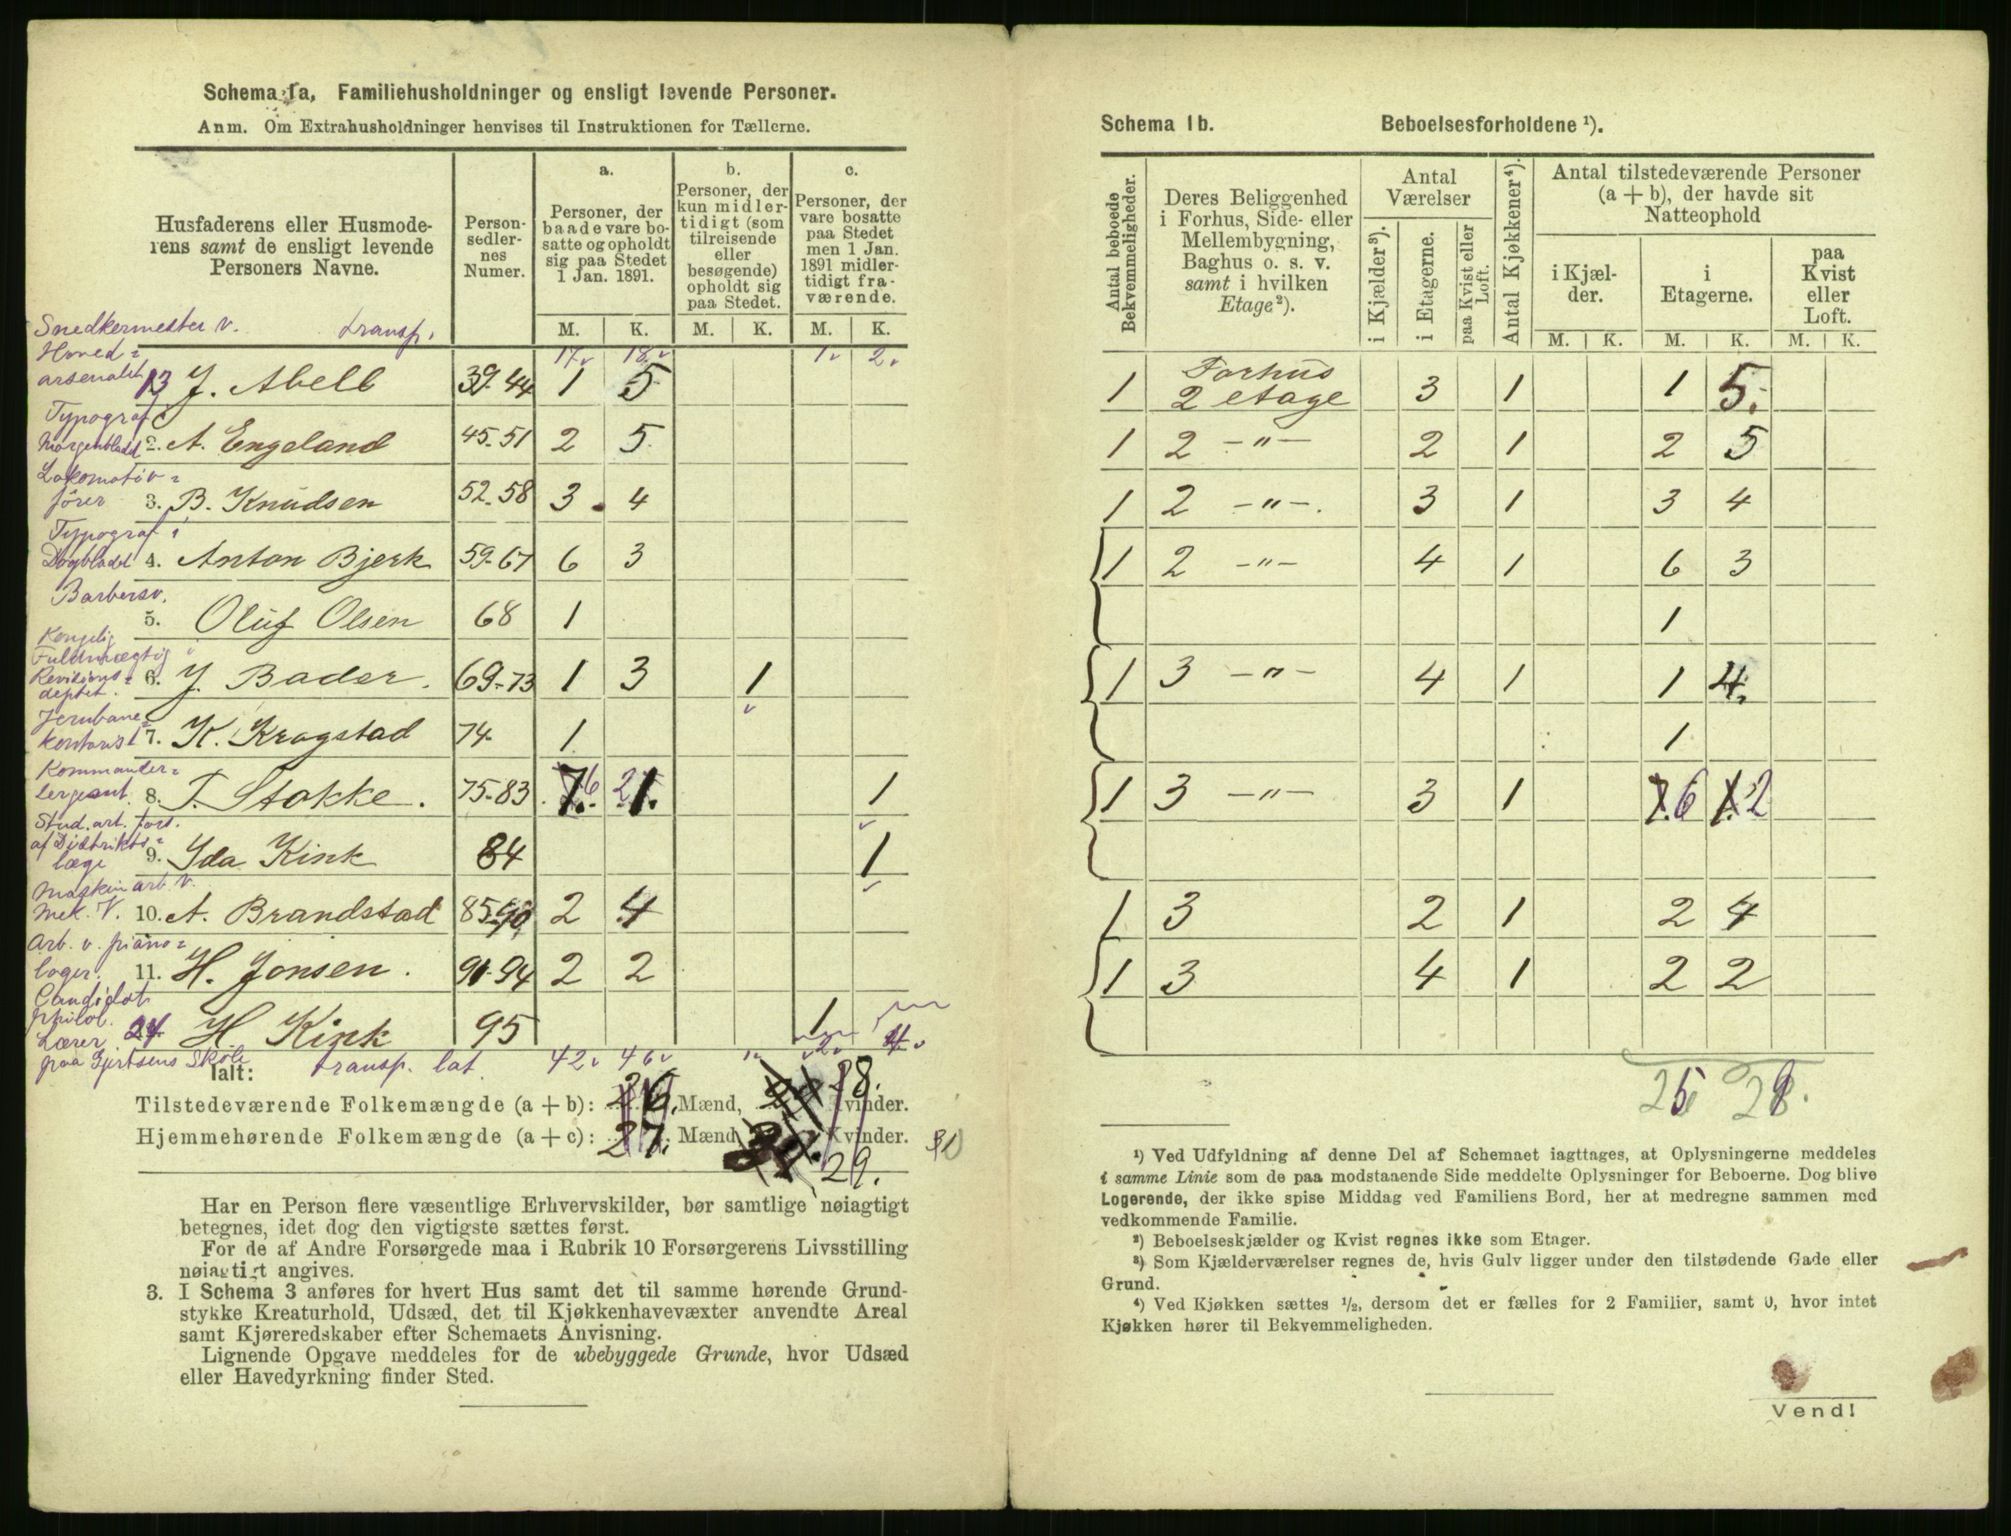 Schema 1a. Familiehusholdninger og ensligt levende Personer.
Anm. Om Extrahusholdninger henvises til Instruktionen for Tællerne.
Husfaderens eller Husmoderens samt de ensligt levende Personers Navne.
Personsedlernes Numer.
a. Personer, der baade vare bosatte og opholdt sig paa Stedet 1 Jan. 1891.
b. Personer, der kun midlertidigt (som tilreisende eller besøgende) opholdt sig paa Stedet.
c. Personer, der vare bosatte paa Stedet men 1 Jan. 1891 midlertidigt fraværende.
M. K. M. K. M. K.
Snedkermester v. transp. 17 18 1 2
Hoved=
arsenalet 13 J. Abell 39-44 1 5
Typograf
Morgenbladet 2. A. Engeland 45-51 2 5
Lokomotiv=
fører 3. B. Knudsen 52-58 3 4
Typograf i
Dagbladet 4. Anton Bjerk 59-67 6 3
Barbersv.
5. Oluf Olsen 68 1
Kongelig
Fuldmægtig i
Revisions=
deptet. 6. J. Bader. 69-73 1 3 1
Jernbane=
kontorist 7. K. Kragstad 74 1
Kommander=
sergeant. 8. T. Stokke. 75-83 7. 6 2 1. 1
Stud. art. fors.
af Distrikts=
læge 9. Ida Kink 84 1
Maskinarb. v.
Mek. V. 10. A. Brandstad 85-90 2 4
Arb. v. piano=
lager. 11. H. Jonsen. 91-94 2 2
Candidat
philol. 24 H. Kink 95 1
Lærer
paa Gjertsens Skole
Ialt: transp. lat. 42 46 1 2 4
Tilstedeværende Folkemængde (a + b): 26. Mænd, 28. Kvinder.
Hjemmehørende Folkemængde (a + c): 27. Mænd Kvinder.
29.
Har en Person flere væsentlige Erhvervskilder, bør samtlige nøiagtigt
betegnes, idet dog den vigtigste sættes først.
For de af Andre Forsørgede maa i Rubrik 10 Forsørgerens Livsstilling
nøiagtigt angives.
3. I Schema 3 anføres for hvert Hus samt det til samme hørende Grund-
stykke Kreaturhold, Udsæd, det til Kjøkkenhavevæxter anvendte Areal
samt Kjøreredskaber efter Schemaets Anvisning.
Lignende Opgave meddeles for de ubebyggede Grunde, hvor Udsæd
eller Havedyrkning finder Sted.
Schema 1b. Beboelsesforholdene ¹).
Antal beboede Bekvemmeligheder.
Deres Beliggenhed i Forhus, Side- eller Mellembygning, Baghus o. s. v. samt i hvilken Etage²).
Antal Værelser
i Kjælder³).
i Etagerne.
paa Kvist eller Loft.
Antal Kjøkkener⁴).
Antal tilstedeværende Personer (a + b), der havde sit Natteophold
i Kjælder.
i Etagerne.
paa Kvist eller Loft.
M. K. M. K. M. K.
1 Forhus 2 etage 3 1 1 5.
1 2 -"- 2 1 2 5
1 2 -"-. 3 1 3 4
1 2 -"- 4 1 6 3
1
1 3 -"- 4 1 1 4.
1
1 3 -"- 3 1 7. 6 1. 2
1 3 2 1 2 4
1 3 4 1 2 2
¹) Ved Udfyldning af denne Del af Schemaet iagttages, at Oplysningerne meddeles
i samme Linie som de paa modstaaende Side meddelte Oplysninger for Beboerne. Dog blive
Logerende, der ikke spise Middag ved Familiens Bord, her at medregne sammen med
vedkommende Familie.
²) Beboelseskjælder og Kvist regnes ikke som Etager.
³) Som Kjælderværelser regnes de, hvis Gulv ligger under den tilstødende Gade eller
Grund.
⁴) Ved Kjøkken sættes ½, dersom det er fælles for 2 Familier, samt 0, hvor intet
Kjøkken hører til Bekvemmeligheden.
Vend!